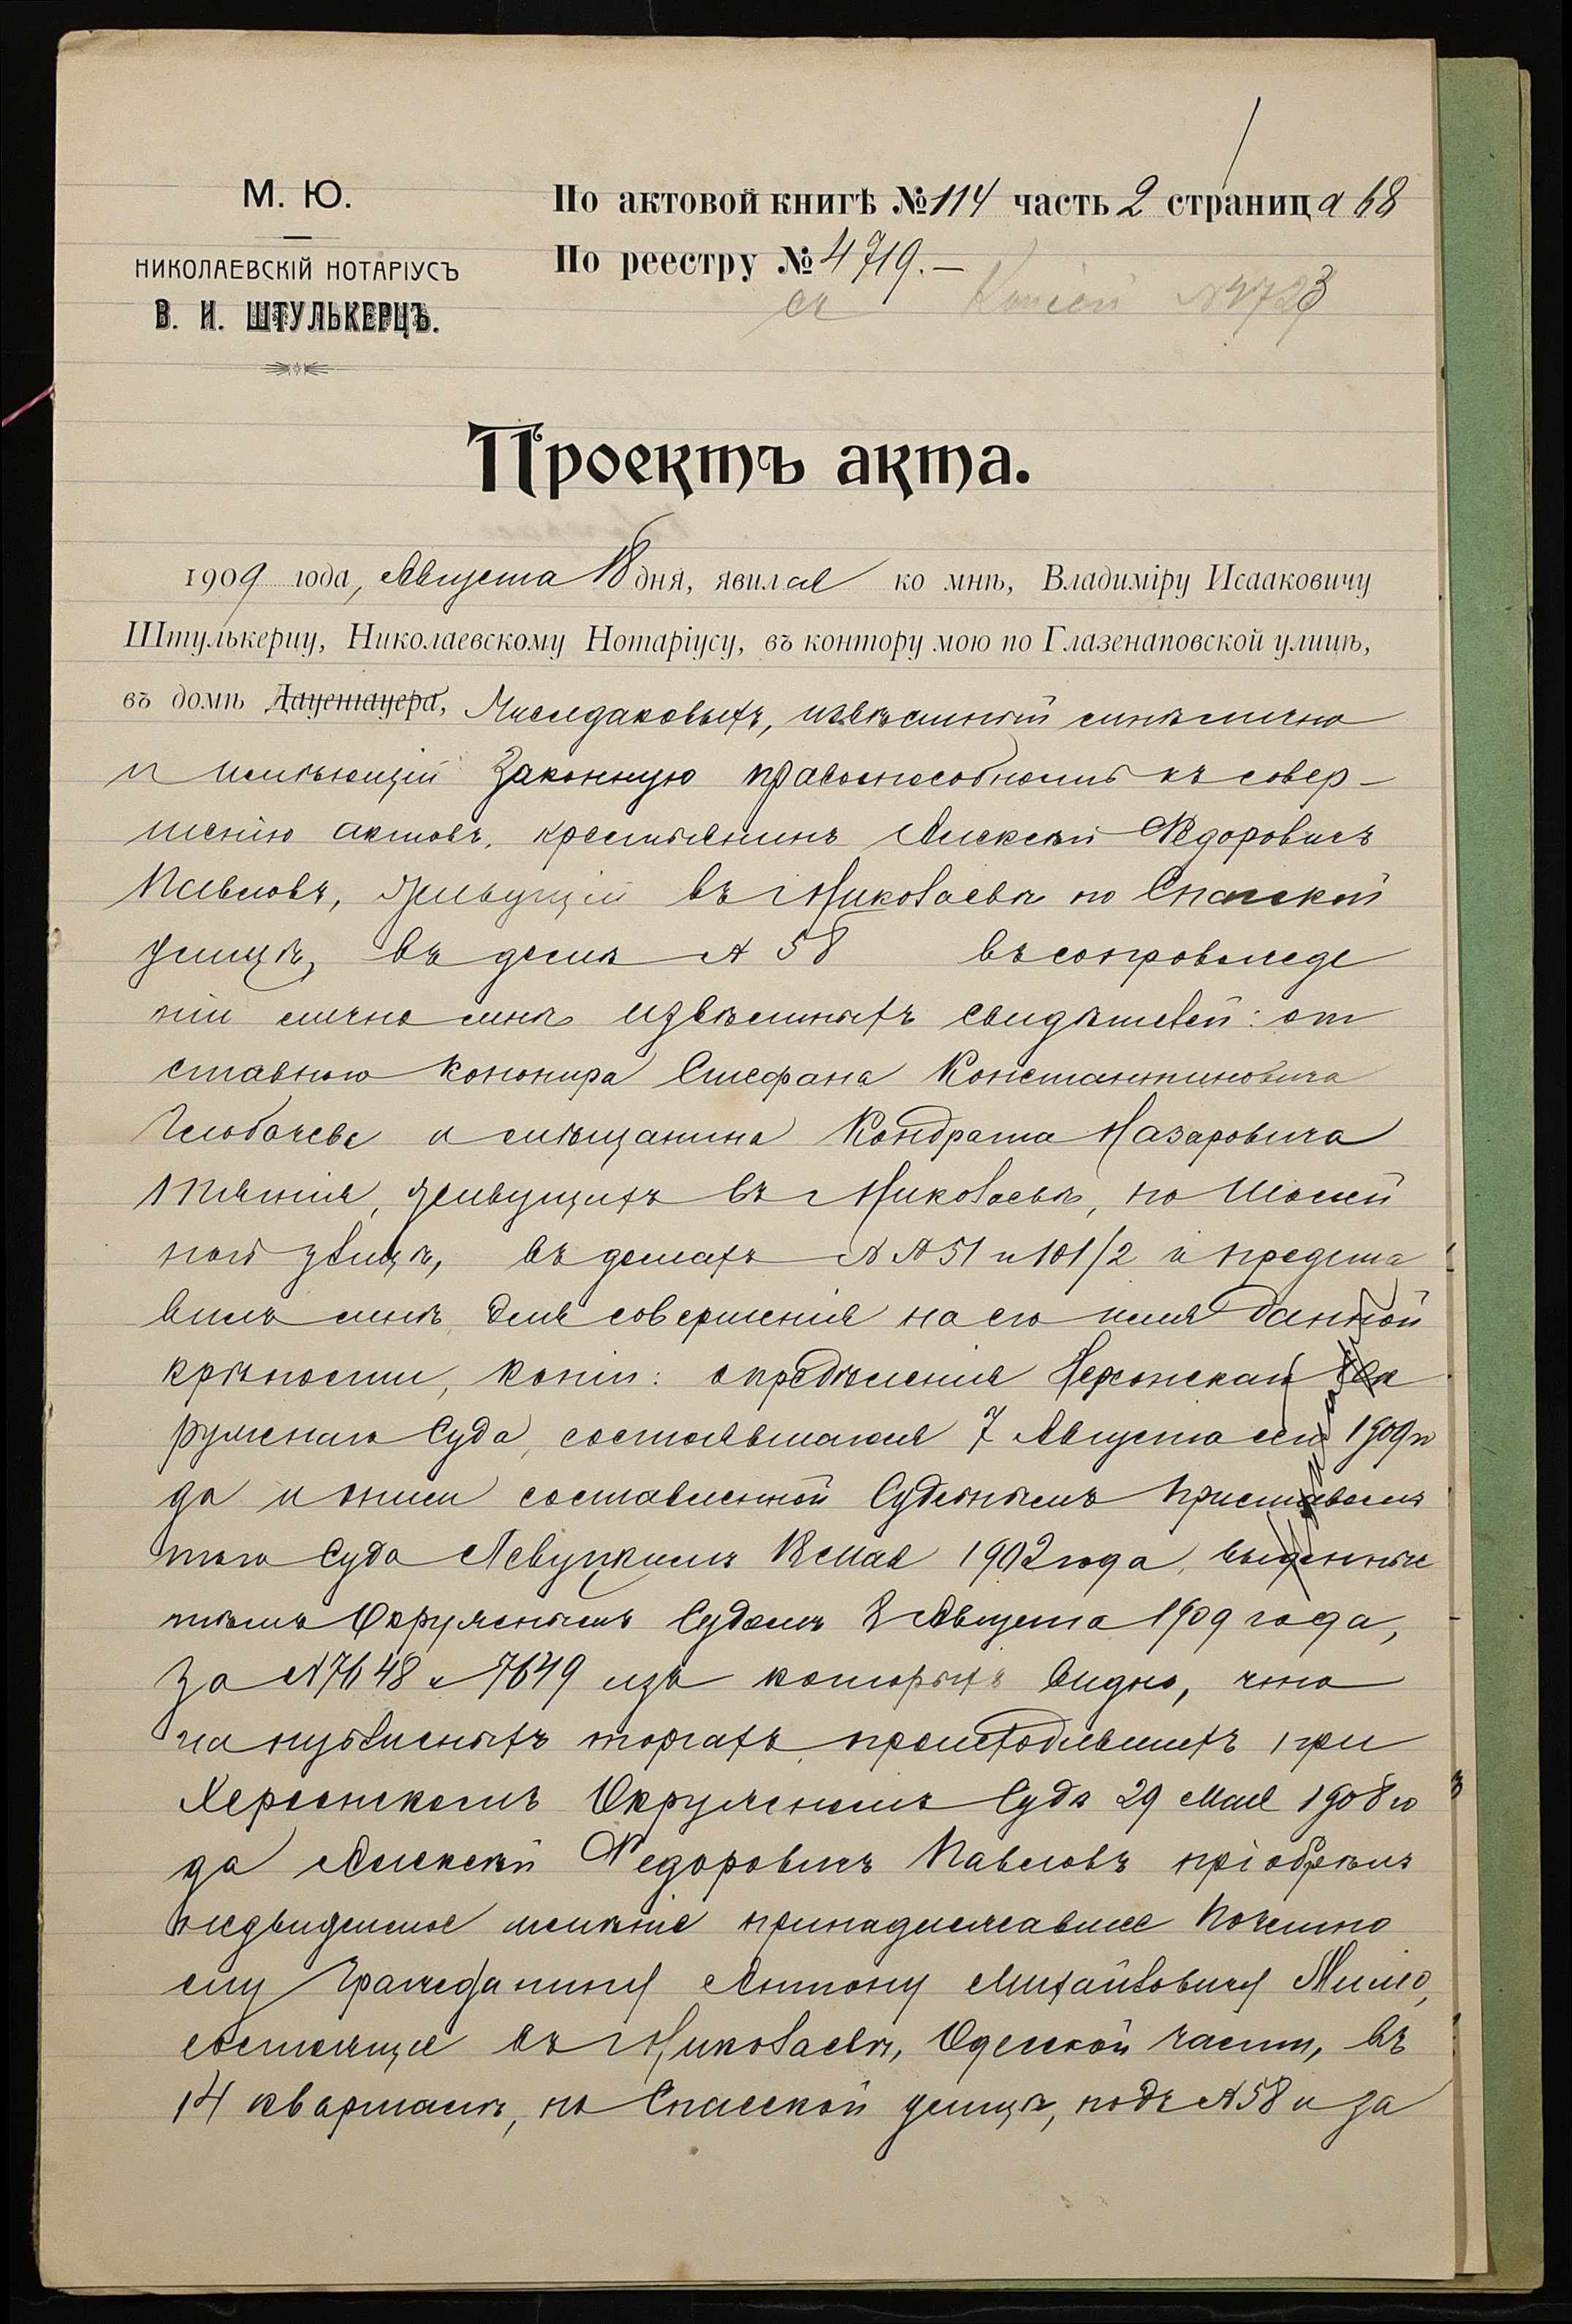 М. Ю.
НИКОЛАЕВСКІЙ НОТАРІУСЪ
В. И. ШТУЛЬКЕРЦЪ.
По актовой книгѣ № 114 часть 2 страница 68
По реестру № 4719.—
съ Копіей № 4723
Проектъ акта.
1909 года, Августа 18 дня, явился ко мнѣ, Владиміру Исааковичу
Штулькерцу, Николаевскому Нотаріусу, въ контору мою по Глазенаповской улицѣ,
въ домѣ Дауетауера, извѣстный мнѣ лично
и имѣющій законную правоспособность къ совер-
шенію актовъ, крестьянинъ Алексѣй Ѳедоровичъ
Павловъ, живущій въ Николаевѣ по Спасской
улицѣ, въ домѣ № 58 въ сопровожде
ніи лично мнѣ извѣстныхъ свидѣтелей: от
ставного Канонира Стефана Константиновича
и мѣщанина Кондрата Назаровича
живущихъ въ Николаевѣ, по
ной улицѣ, въ домахъ № № 51 и 101/2 и предста
вилъ мнѣ, для совершенія на его имя данной
крѣпости, копіи: опредѣленія Херсонскаго Ок
ружнаго Суда, состоявшагося 7 Августа сего 1909 го
да и описи составленной Судебнымъ Приставомъ
того Суда Левуцкимъ 18 Мая 1902 года, выданныя
тѣмъ Окружнымъ Судомъ 8 Августа 1909 года,
за № 7648 и 7649 изъ которыхъ видно, что
на публичныхъ торгахъ, происходившихъ при
Херсонскомъ Окружномъ Судѣ 29 Мая 1908 го
да Алексѣй Ѳедоровичъ Павловъ пріобрѣлъ
недвижимое имѣніе принадлежавшее Почетно
му Гражданину Антону Михайловичу
состоящее въ Николаевѣ, Одесской части, въ
14 кварталѣ, по Спасской улицѣ, подъ № 58 и за